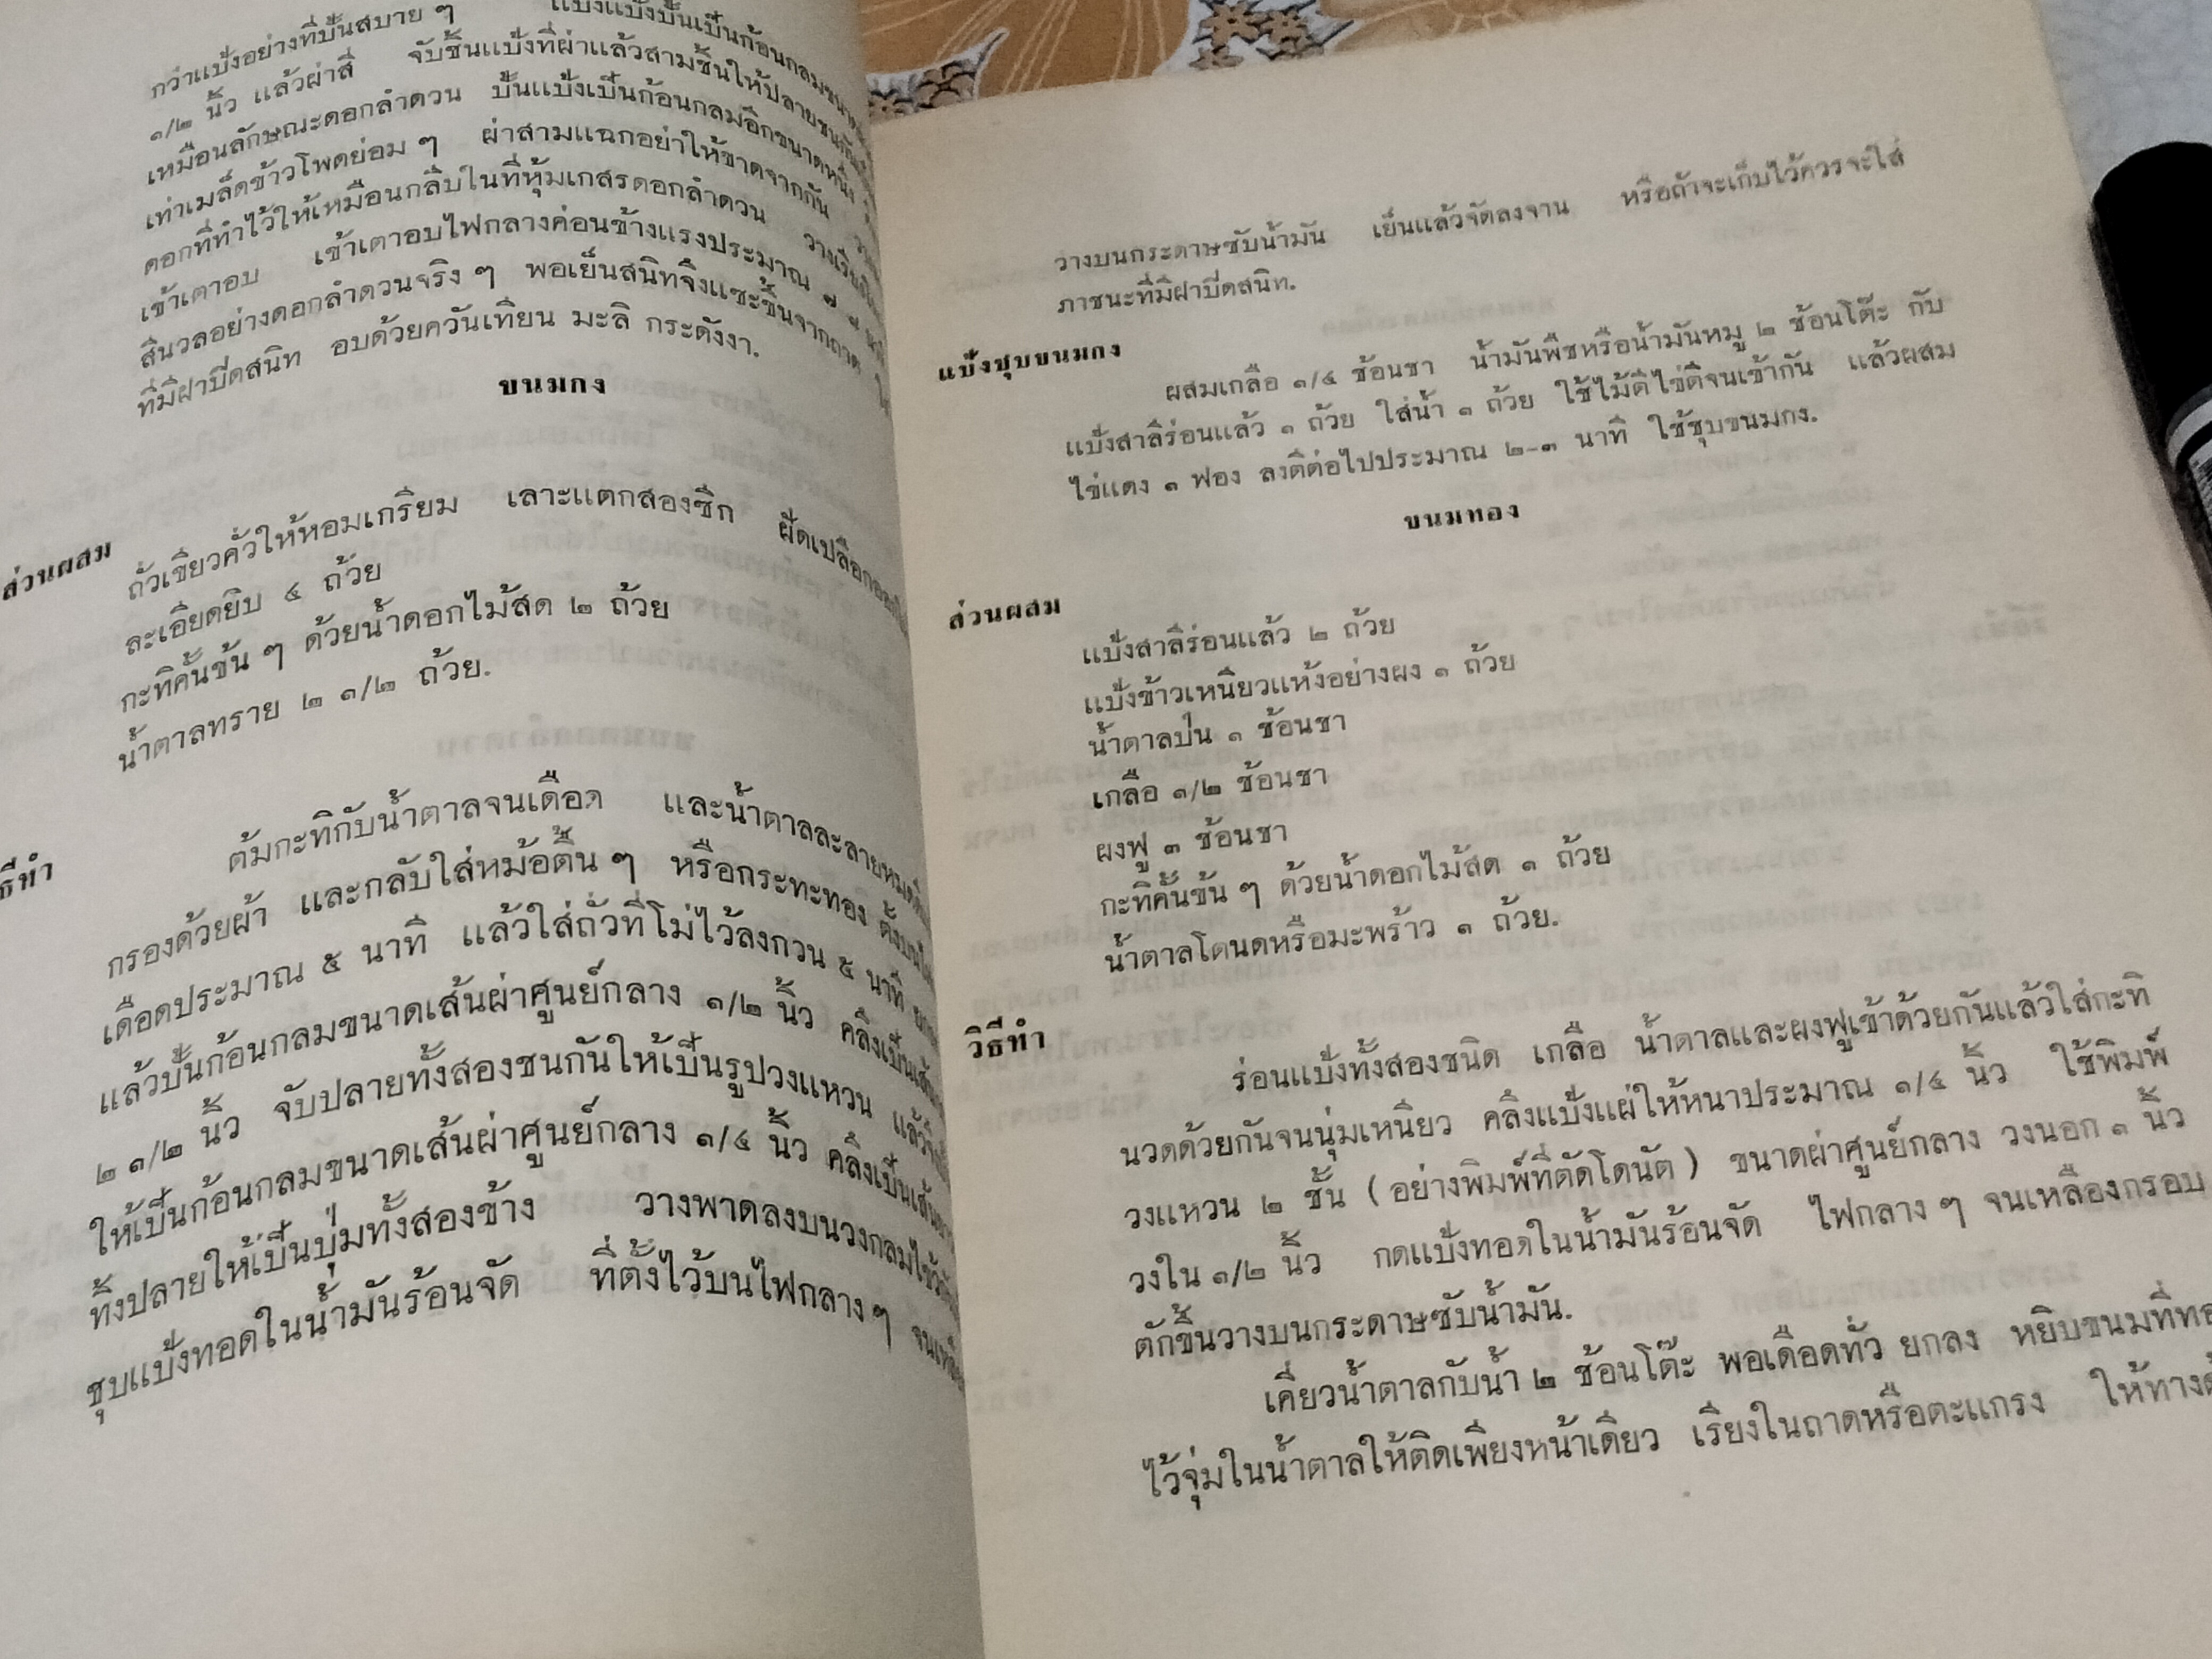 กว่าแป้งอย่างที่ปั้นสบาย ๆ แบ่งแป้งปั้นเป็นก้อนกลมขนาด
๑/๒ นิ้ว แล้วผ่าสี่ จับชิ้นแป้งที่ผ่าแล้วสามชิ้นให้ปลายชนกัน
เหมือนลักษณะดอกลำดวน ปั้นแป้งเป็นก้อนกลมอีกขนาดหนึ่ง
เท่าเมล็ดข้าวโพดย่อม ๆ ผ่าสามแฉกอย่าให้ขาดจากกัน
ดอกที่ทำไว้ให้เหมือนกลีบในที่หุ้มเกสรดอกลำดวน
เข้าเตาอบ เข้าเตาอบไฟกลางค่อนข้างแรงประมาณ ๗
สีนวลอย่างดอกลำดวนจริง ๆ พอเย็นสนิทจึงแซะขึ้นจากถาด
ที่มีฝาปิดสนิท อบด้วยควันเทียน มะลิ กระดังงา.
ขนมกง
ส่วนผสม
ถั่วเขียวคั่วให้หอมเกรียม เลาะแตกสองซีก ฝัดเปลือกออก
ละเอียดยิบ ๔ ถ้วย
กะทิคั้นข้น ๆ ด้วยน้ำดอกไม้สด ๒ ถ้วย
น้ำตาลทราย ๒ ๑/๒ ถ้วย.
ธีทำ
ต้มกะทิกับน้ำตาลจนเดือด และน้ำตาลละลายหมด
กรองด้วยผ้า และกลับใส่หม้อตื้น ๆ หรือกระทะทอง ตั้งบน
เดือดประมาณ ๕ นาที แล้วใส่ถั่วที่โม่ไว้ลงกวน ๕ นาที
แล้วปั้นก้อนกลมขนาดเส้นผ่าศูนย์กลาง ๑/๒ นิ้ว คลึงเป็น
๒ ๑/๒ นิ้ว จับปลายทั้งสองชนกันให้เป็นรูปวงแหวน
ให้เป็นก้อนกลมขนาดเส้นผ่าศูนย์กลาง ๑/๔ นิ้ว คลึงเป็น
ทิ้งปลายให้เป็นปุ่มทั้งสองข้าง วางพาดลงบนวงกลม
ชุบแป้งทอดในน้ำมันร้อนจัด ที่ตั้งไว้บนไฟกลาง ๆ
วางบนกระดาษซับน้ำมัน เย็นแล้วจัดลงจาน หรือถ้าจะเก็บไว้ควรจะใส่
ภาชนะที่มีฝาปิดสนิท.
แป้งชุบขนมกง
ผสมเกลือ ๑/๔ ช้อนชา น้ำมันพืชหรือน้ำมันหมู ๒ ช้อนโต๊ะ กับ
แป้งสาลีร่อนแล้ว ๑ ถ้วย ใส่น้ำ ๑ ถ้วย ใช้ไม้ตีไข่ตีจนเข้ากัน แล้วผสม
ไข่แดง ๑ ฟอง ลงตีต่อไปประมาณ ๒-๓ นาที ใช้ชุบขนมกง.
ขนมทอง
ส่วนผสม
แป้งสาลีร่อนแล้ว ๒ ถ้วย
แป้งข้าวเหนียวแห้งอย่างผง ๑ ถ้วย
น้ำตาลป่น ๑ ช้อนชา
เกลือ ๑/๒ ช้อนชา
ผงฟู ๓ ช้อนชา
กะทิคั้นข้น ๆ ด้วยน้ำดอกไม้สด ๑ ถ้วย
น้ำตาลโตนดหรือมะพร้าว ๑ ถ้วย.
วิธีทำ
ร่อนแป้งทั้งสองชนิด เกลือ น้ำตาลและผงฟูเข้าด้วยกันแล้วใส่กะทิ
นวดด้วยกันจนนุ่มเหนียว คลึงแป้งแผ่ให้หนาประมาณ ๑/๔ นิ้ว ใช้พิมพ์
วงแหวน ๒ ชั้น (อย่างพิมพ์ที่ตัดโดนัต) ขนาดผ่าศูนย์กลาง วงนอก ๑ นิ้ว
วงใน ๑/๒ นิ้ว กดแป้งทอดในน้ำมันร้อนจัด ไฟกลาง ๆ จนเหลืองกรอบ
ตักขึ้นวางบนกระดาษซับน้ำมัน.
เคี่ยวน้ำตาลกับน้ำ ๒ ช้อนโต๊ะ พอเดือดทั่ว ยกลง หยิบขนมที่
ไว้จุ่มในน้ำตาลให้ติดเพียงหน้าเดียว เรียงในถาดหรือตะแกรง ให้ทาง